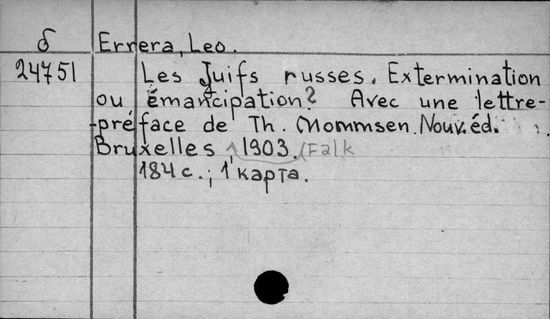 б Errera, Leo.
24751 Les Juifs russes. Extermination
ou émancipation? Avec une lettre-
-préface de Th. Mommsen. Nouv. éd.
Bruxelles, 1903. (Falk
184 с.; 1 карта.